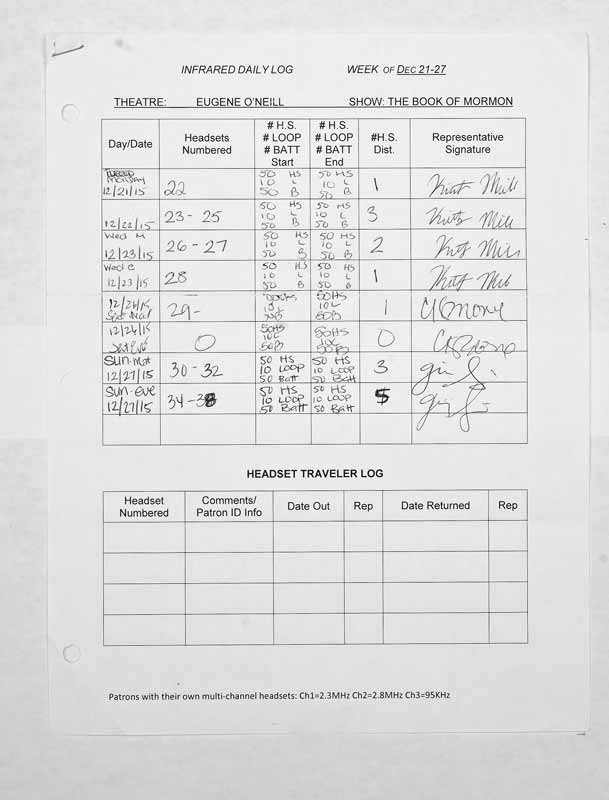 INFRARED DAILY LOG WEEK OF DEC 21-27
THEATRE: EUGENE O'NEILL SHOW: THE BOOK OF MORMON
Day/Date Headsets Numbered # H.S. # LOOP # BATT Start # H.S. # LOOP # BATT End #H.S. Dist. Representative Signature
Monday 12/21/15 22 50 HS 10 L 50 B 50 HS 10 L 50 B 1
12/22/15 23-25 50 HS 10 L 50 B 50 HS 10 L 50 B 3
Wed M 12/23/15 26-27 50 HS 10 L 50 B 50 HS 10 L 50 B 2
Wed E 12/23/15 28 50 HS 10 L 50 B 50 HS 10 L 50 B 1
12/26/15 29- 50HS 10L 50B 1
12/26/15 0 50HS 10L 50B 50HS 10L 50B 0
SUN MAT 12/27/15 30-32 50 HS 10 LOOP 50 Batt 50 HS 10 LOOP 50 Batt 3
SUN eve 12/27/15 34-38 50 HS 10 LOOP 50 Batt 50 HS 10 LOOP 50 Batt 5
HEADSET TRAVELER LOG
Headset Numbered Comments/ Patron ID Info Date Out Rep Date Returned Rep
Patrons with their own multi-channel headsets: Ch1=2.3MHz Ch2=2.8MHz Ch3=95KHz